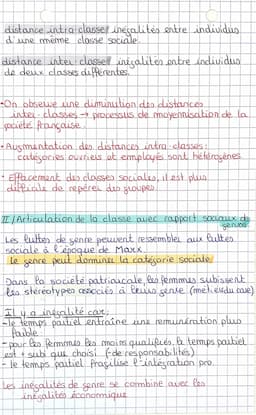 distance intra-classe/ inégalités entre individus
d'une même classe sociale.
distance inter classe/ inégalités entre individus
de deux classes différentes.
•On observe une diminution des distances
inter-classes → processus de moyennisation de la
société française.
•Augmentation des distances intra-classes:
catégories ouvriers et employés sont hétérogènes.
•Effacement des classes sociales, il est plus
difficile de repérer des groupes
II/Articulation de la classe avec rapport sociaux de
genres
Les luttes de genre peuvent ressembler aux luttes
sociale à l'époque de Marx
le genre peut dominer la catégorie sociale
Dans la société patriarcale, les femmes subissent
les stéréotypes associés à leurs genre (met. culdu care)
Il y a inégalité car:
-le temps partiel entraîne une rémunération plus
faible.
-pour les femmes les moins qualifiées, le temps partiel
est + subi que choisi (-de responsabilités)
-le temps partiel fragilise l'intégration pro.
Les inégalités de genre se combine avec les
inégalités économique